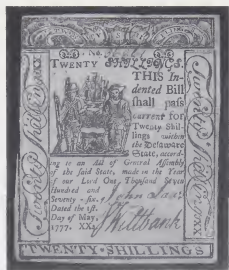 No.
TWENTY SHILLINGS.
THIS In-
dented Bill
ſhall paſs
current for
Twenty Shil-
lings within
the Delaware
State, accord-
ing to an Act of General Aſſembly
of the ſaid State, made in the Year
of our Lord One Thouſand Seven
Hundred and
Seventy-ſix.
Dated the 1ſt.
Day of May,
1777. XXs.
John
Wiltbank
TWENTY-SHILLINGS
Twenty Shillings
Twenty Shillings